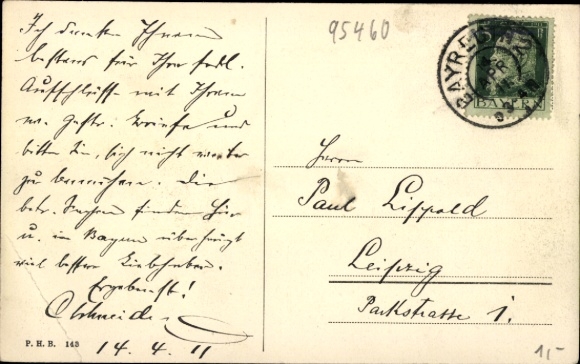 95460
Ich danke Ihnen
bestens für Ihre frdl.
Aufschlüsse mit Ihrem
w. gestr. Briefe und
bitten Sie, sich nicht weiter
zu bemühen. Die
betr. Sachen finden hier
u. in Bayern überhaupt
viel bessere Liebhaber.
Ergebenst!
14. 4. 11
P. H. B. 143
BAYERN
Herrn
Paul Lippold
Leipzig
Parkstrasse 1.
1,-